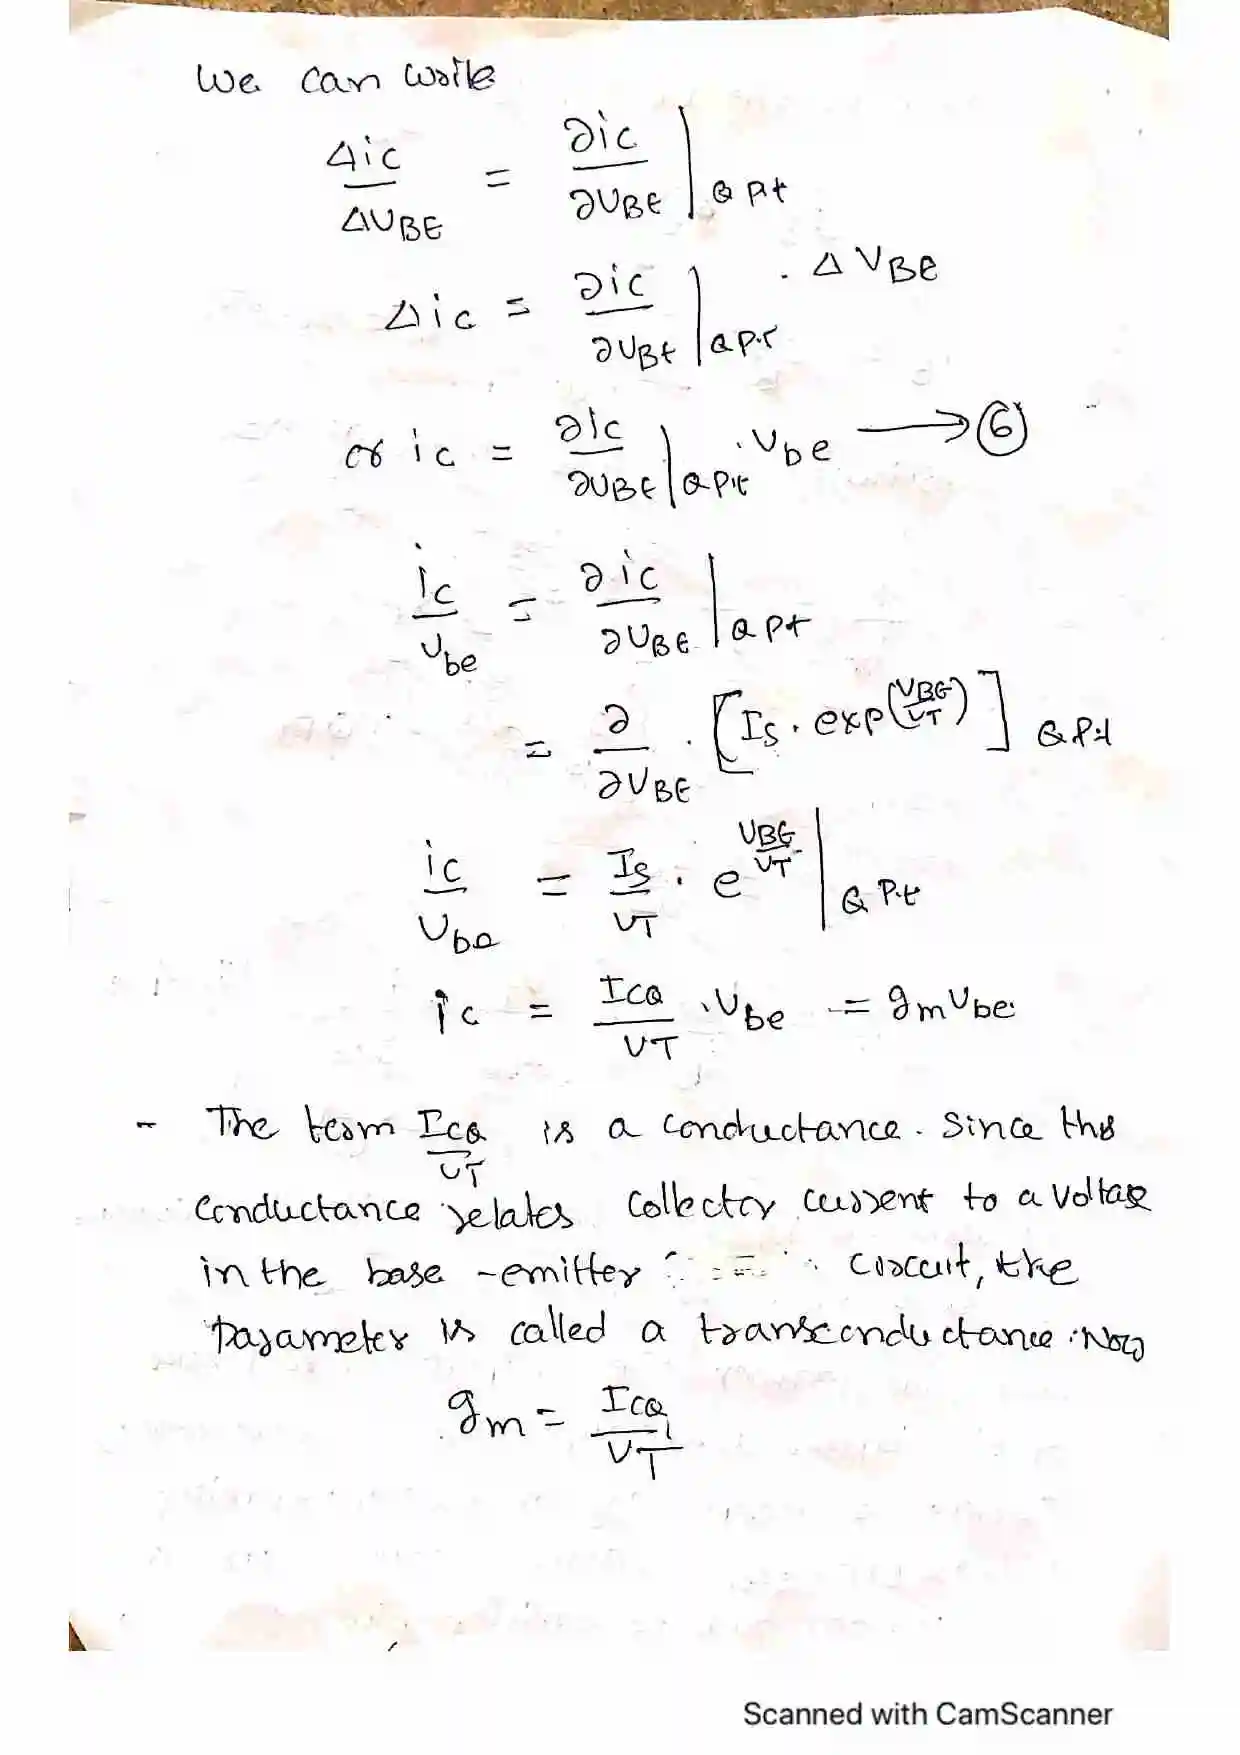 We can write
Δic/ΔVBE = ∂ic/∂VBE | Q pt
Δic = ∂ic/∂VBE | Q pt . ΔVBE
or ic = ∂ic/∂VBE | Q pt . Vbe ⟶ ⑥
ic/Vbe = ∂ic/∂VBE | Q pt
= ∂/∂VBE . [Is . exp(VBE/VT)] Q pt
ic/Vbe = Is/VT . e^(VBE/VT) | Q Pt
ic = ICQ/VT . Vbe = gm Vbe
- The term ICQ/VT is a conductance. Since this
conductance relates collector current to a voltage
in the base - emitter circuit, the
parameter is called a transconductance. Now
gm = ICQ/VT
Scanned with CamScanner